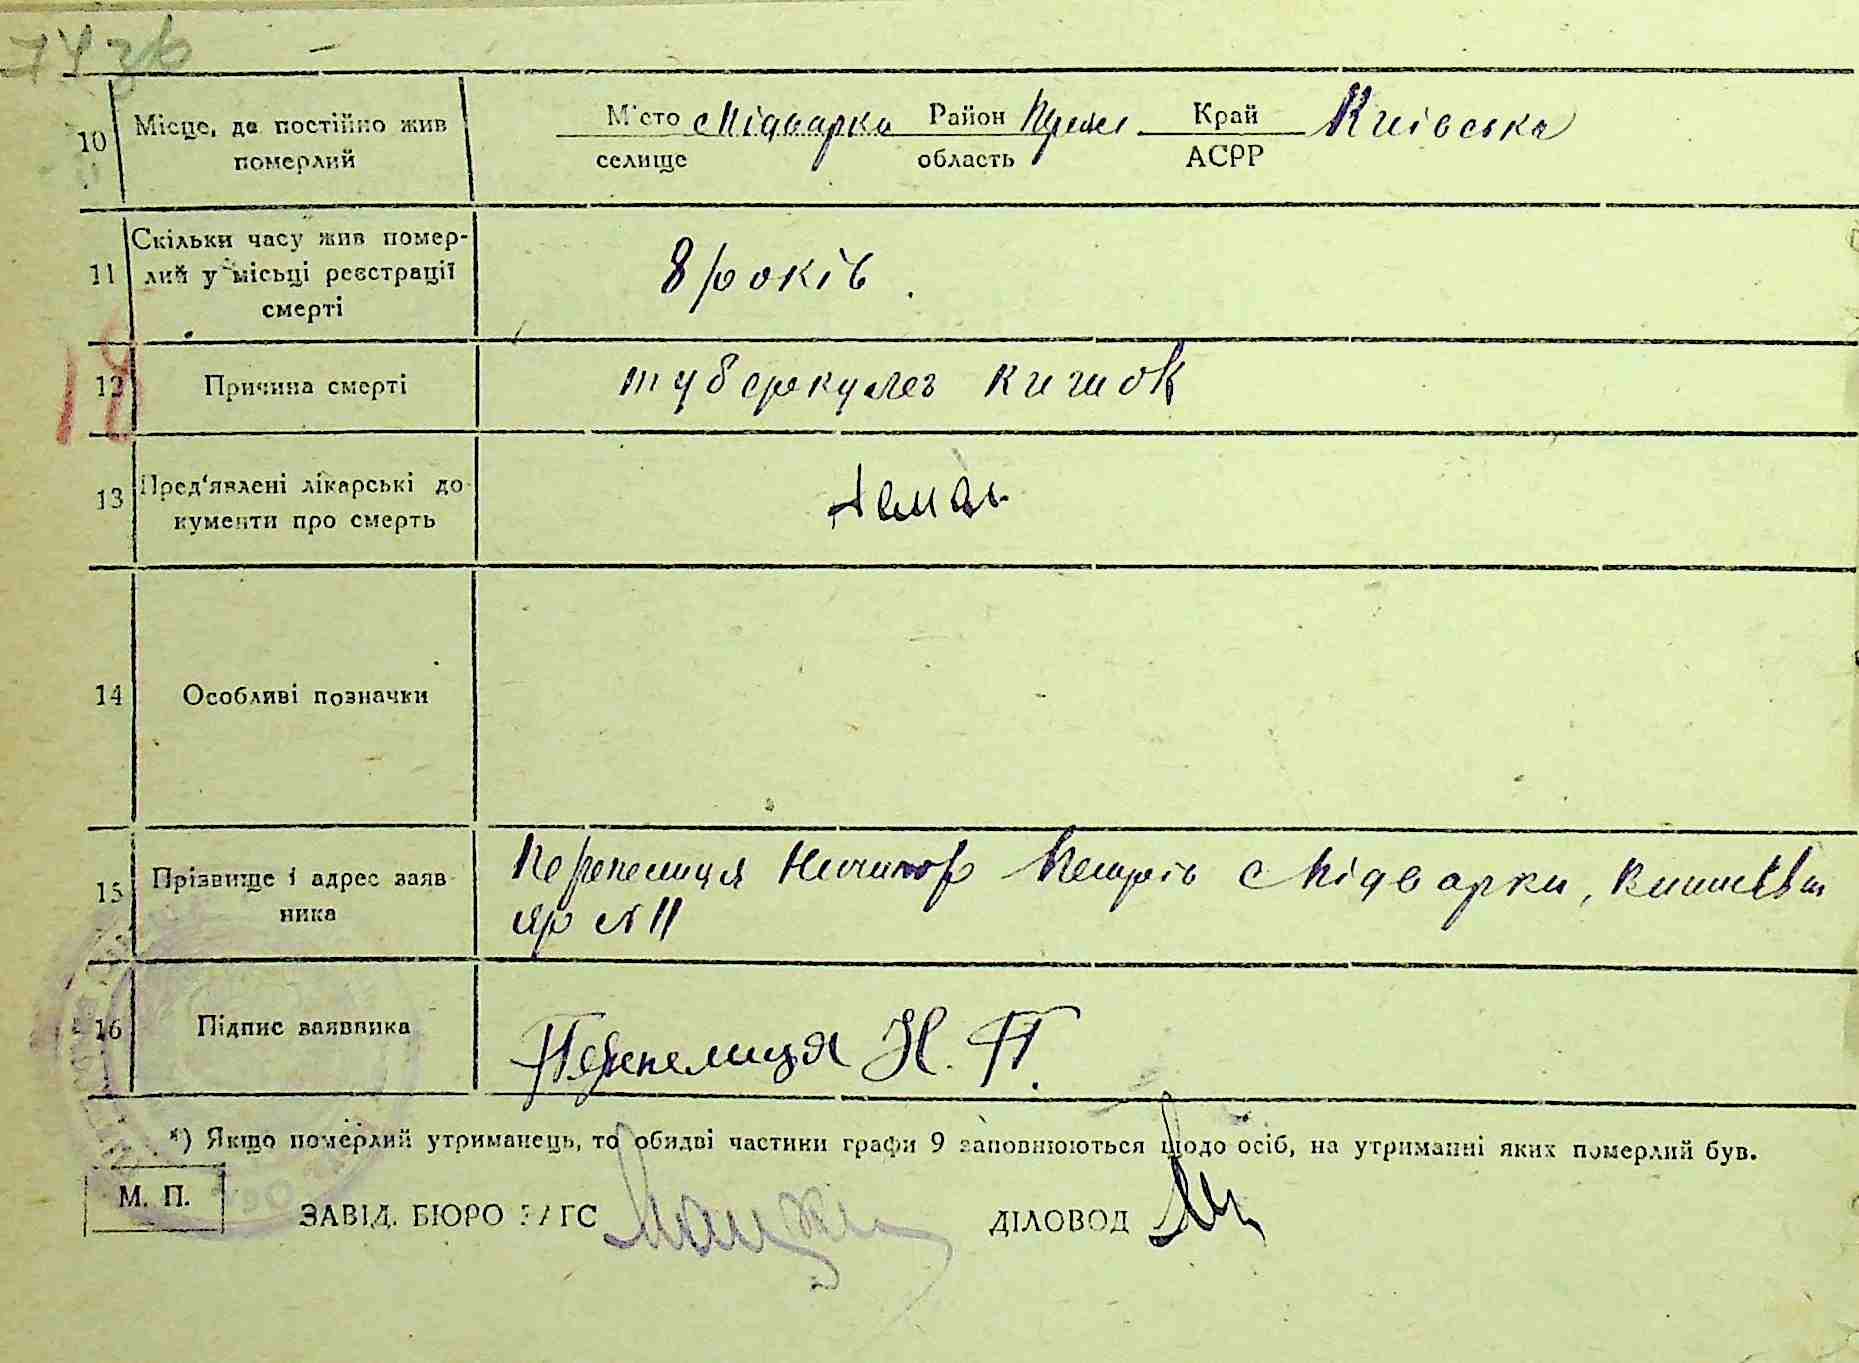 74 зв
10 Місце, де постійно жив М'сто с Підварки Район Край Київська
померлий селище область АСРР
Скільки часу жив помер-
11 лий у місьці реєстрації 8 років
смерті
18
12 Причина смерті туберкульоз кишок
13 Пред'явлені лікарські до-
кументи про смерть немає
14 Особливі позначки
15 Прізвище і адрес заяв- Перепелиця Ничипор Петров с Підварки,
ника яр №11
16 Підпис заявника Перепелиця Н. П.
*) Якщо померлий утриманець, то обидві частини графи 9 заповнюються щодо осіб, на утриманні яких померлий був.
М. П.
ЗАВІД. БЮРО ЗАГС ДІЛОВОД